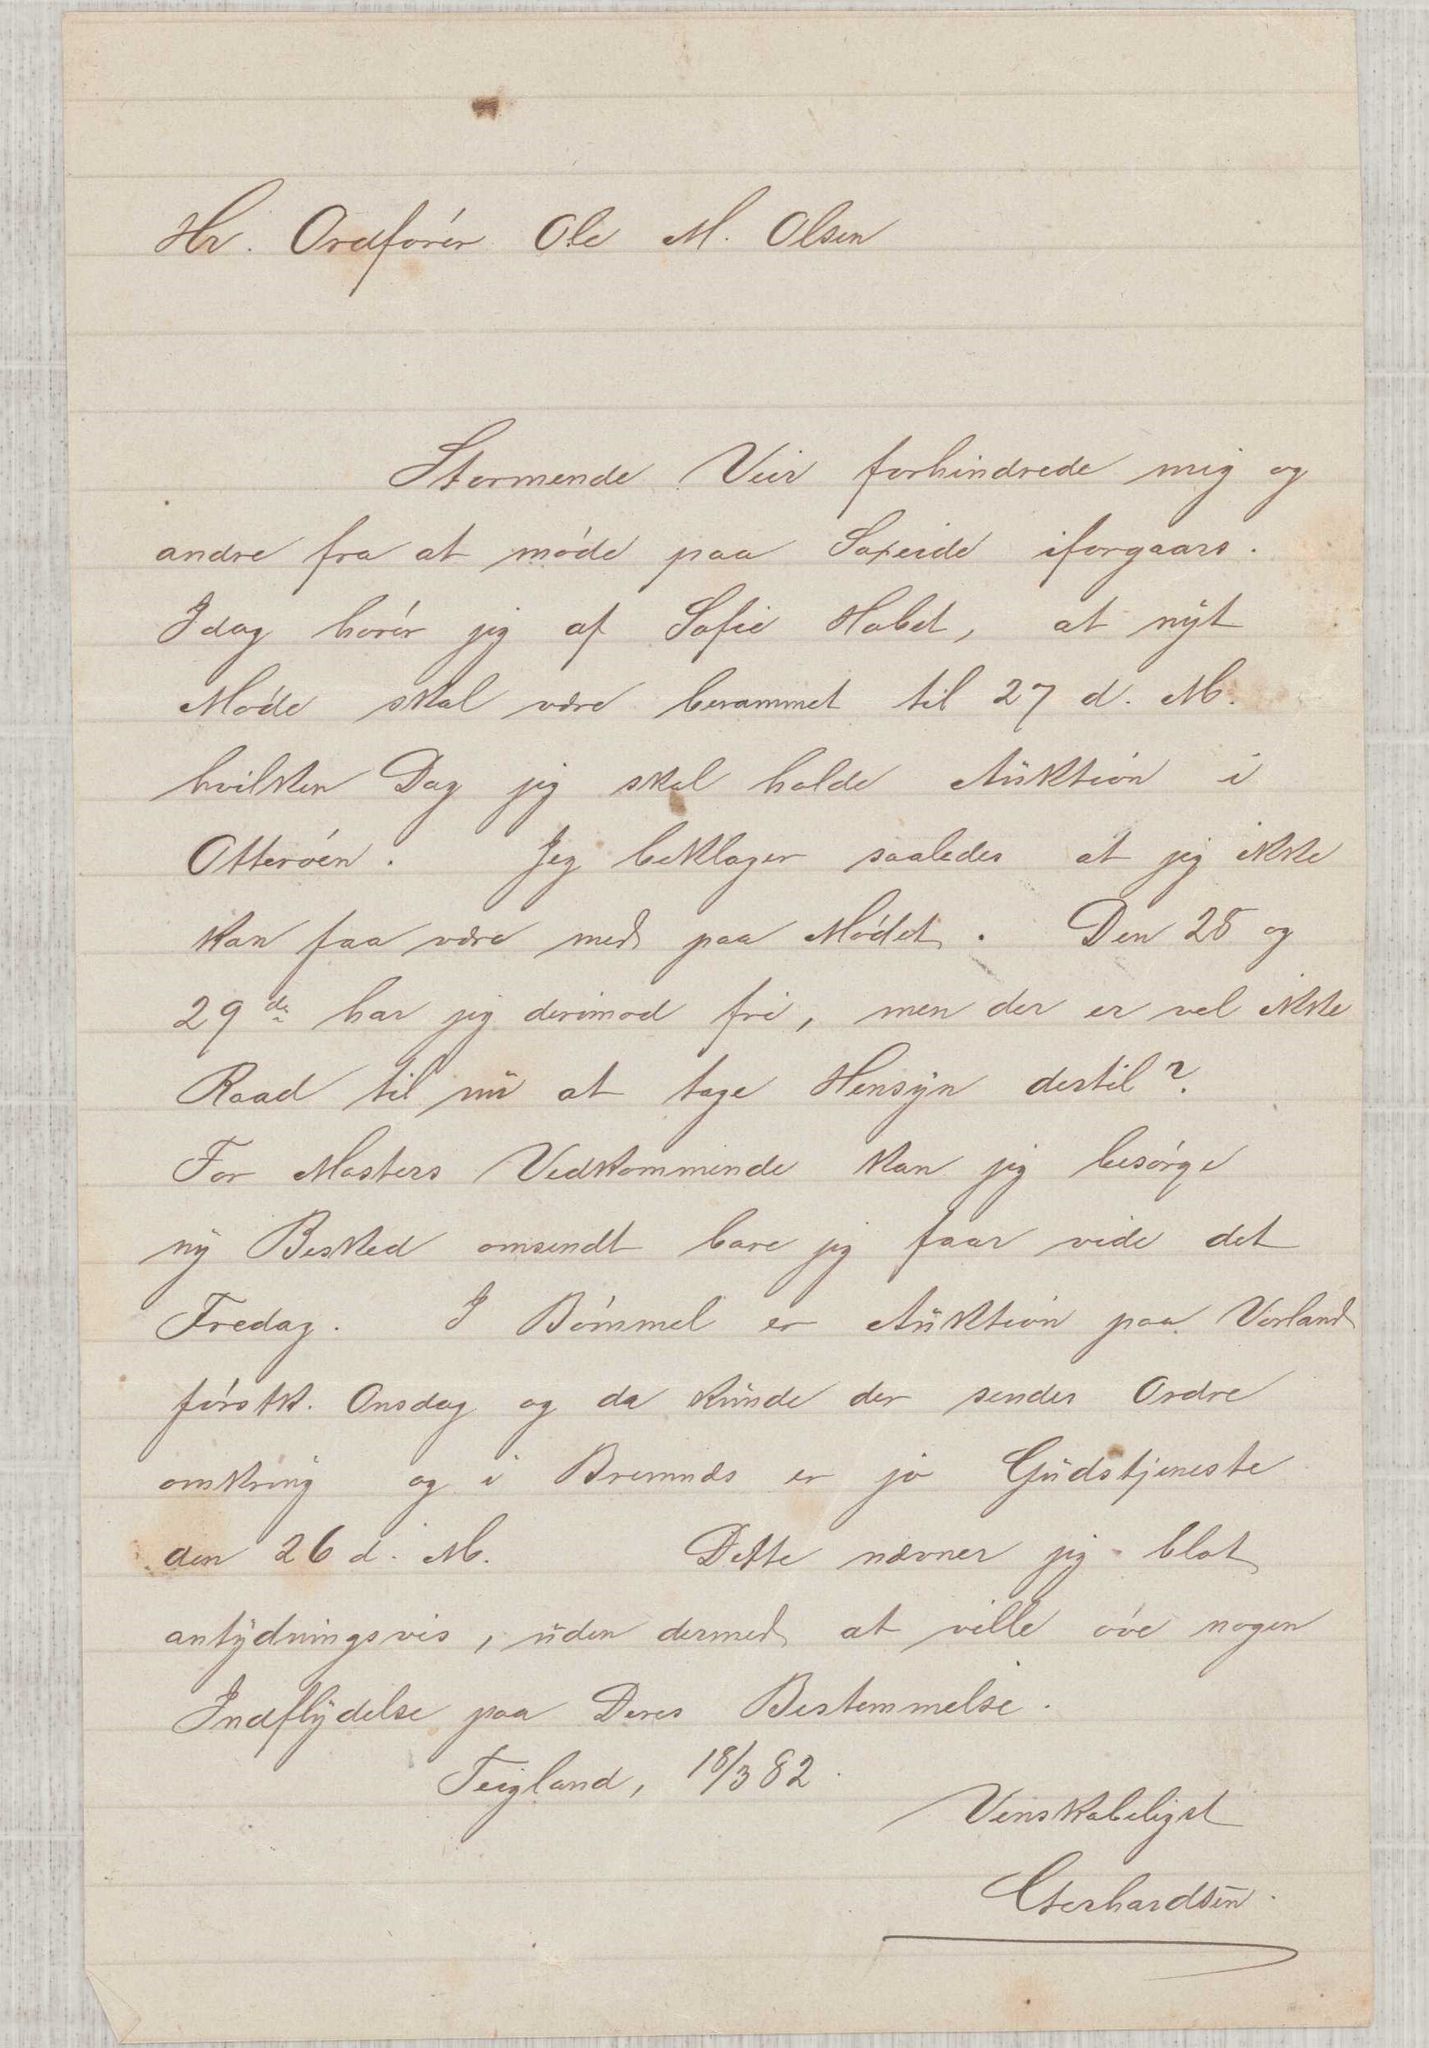 Hr. Ordfører Ole M. Olsen
Stormende Veir forhindrede mig og
andre fra at møde paa Saxeide iforgaars.
Idag hører jeg af Sofie Habet, at nyt
Møde skal være berammet til 27 d. M.
hvilken Dag jeg skal holde Auktion i
Otterøen. Jeg beklager saaledes at jeg ikke
kan faa være med paa Mødet. Den 28 og
29de har jeg derimod fri, men der er vel ikke
Raad til nu at tage Hensyn dertil?
For Mosters Vedkommende kan jeg besørge
ny Besked omsendt bare jeg faar vide det
Fredag. I Bømmel er Auktion paa Vorland
førstk. Onsdag og da kunde der sendes Ordre
omkring og i Bremnæs er jo Gudstjeneste
den 26 d. M. Dette nævner jeg blot
antydningsvis, uden dermed at ville øve nogen
Indflydelse paa Deres Bestemmelse.
Teigland, 18/3 82.
Venskabeligst
Gerhardsen.